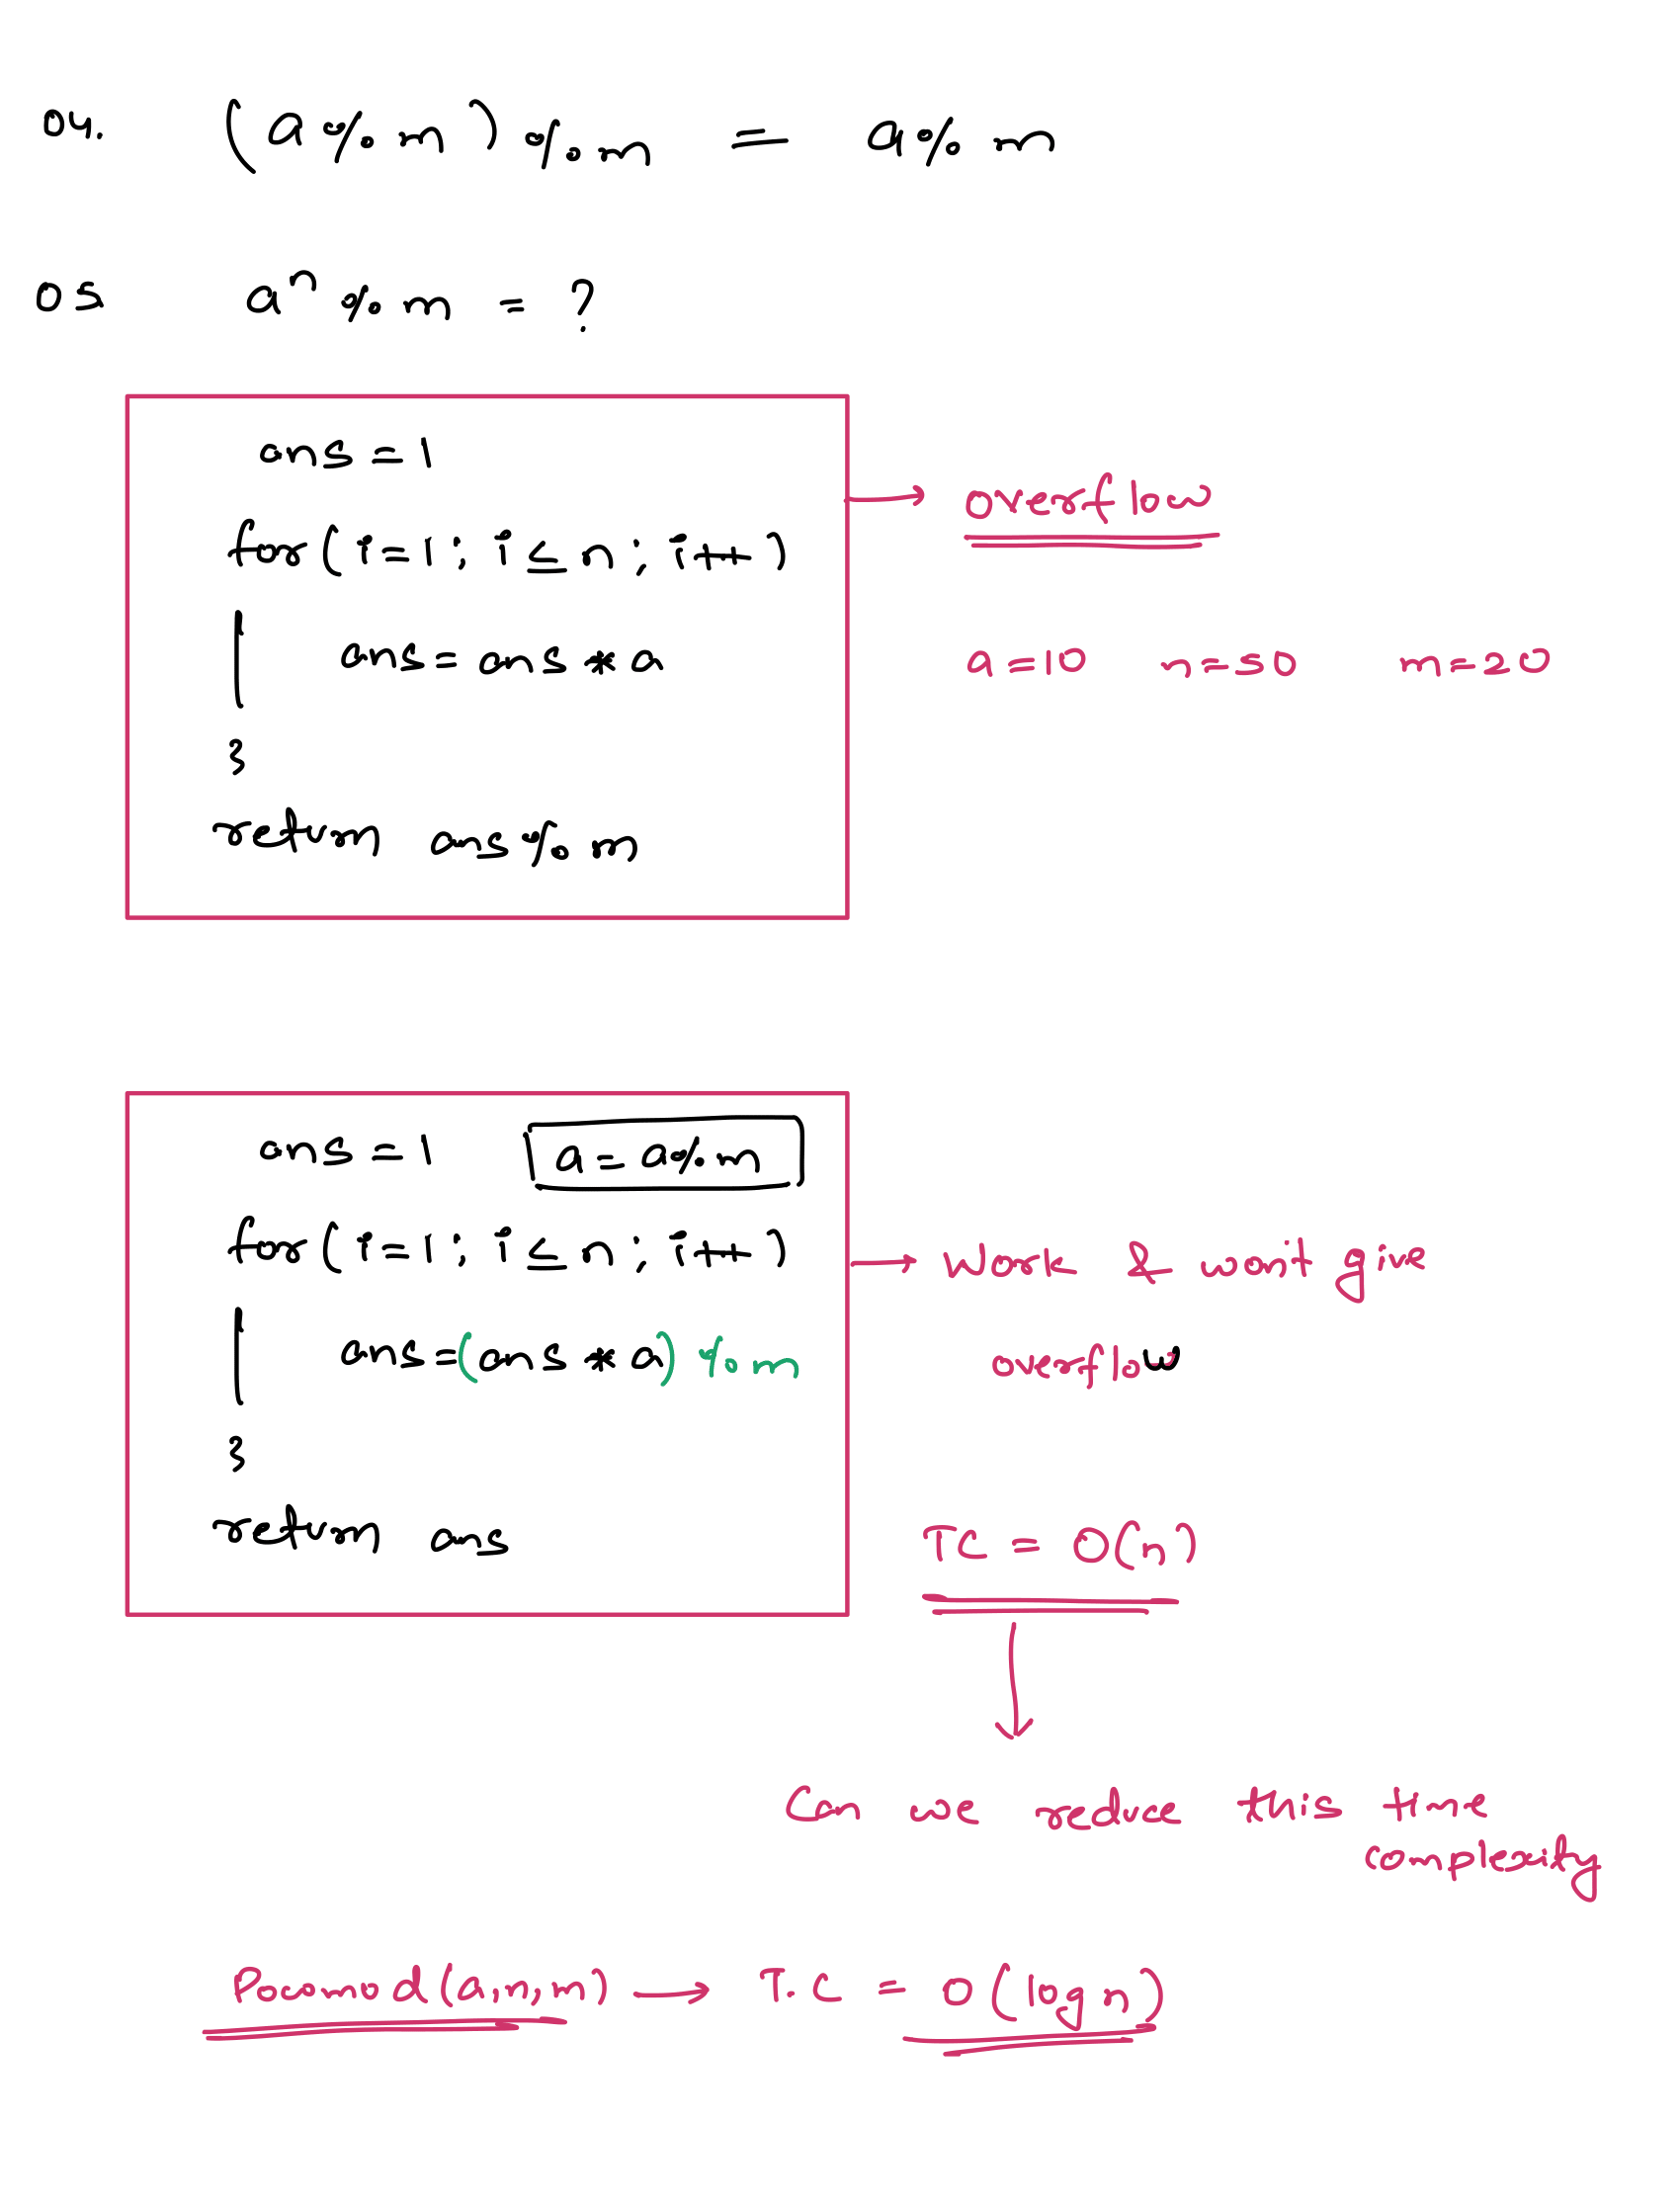 04. (a % m) % m = a % m
05 aⁿ % m = ?
ans = 1
for(i=1; i ≤ n; i++)
ans = ans * a
}
return ans % m
→ overflow
a=10 n=50 m=20
ans = 1 a = a % m
for(i=1; i ≤ n; i++)
ans = (ans * a) % m
}
return ans
→ Work & won't give
overflow
TC = O(n)
↓
Can we reduce this time
complexity
Powmod(a,n,m) → T.C = O(log n)